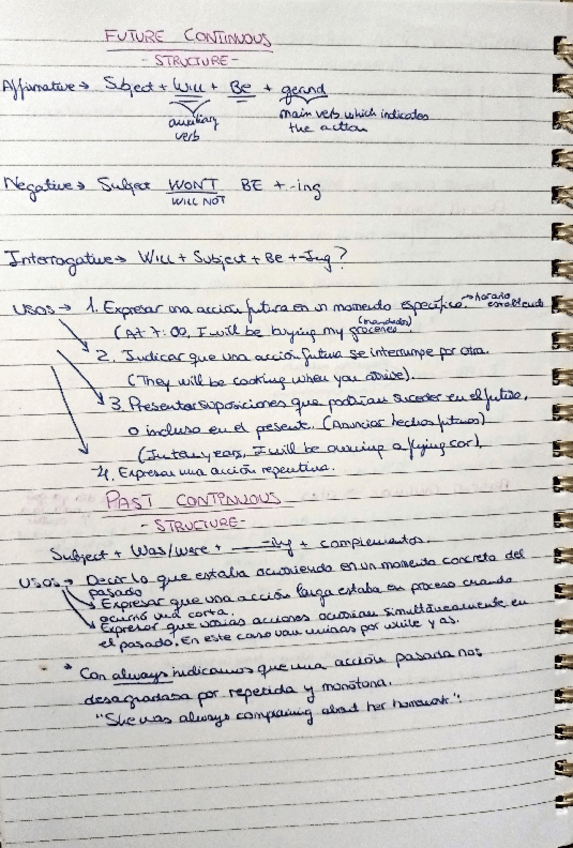 FUTURE CONTINUOUS
- STRUCTURE -
Affirmative → Sbject + Will + Be + gerund
auxiliary verb
main verb which indicates the action
Negative → Subject WON'T BE + -ing
WILL NOT
Interrogative → Will + Subject + Be + -Ing?
USOS → 1. Expresar una acción futura en un momento específico. → horario establecido
(At 7:00, I will be buying my groceries. (mandados)
2. Indicar que una acción futura se interrumpe por otra.
(They will be cooking when you arrive).
3. Presentar suposiciones que podrían suceder en el futuro,
o incluso en el presente. (Anunciar hechos futuros)
(In ten years, I will be owning a flying car).
4. Expresar una acción repentina.
PAST CONTINUOUS
- STRUCTURE -
Subject + Was/were + ____-ing + complementos.
USOS → Decir lo que estaba ocurriendo en un momento concreto del
pasado
Expresar que una acción larga estaba en proceso cuando
ocurrió una corta.
Expresar que varias acciones ocurrían simultáneamente en
el pasado. En este caso van unidas por while y as.
* Con always indicamos que una acción pasada nos
desagradaba por repetida y monótona.
"She was always complaining about her homework".